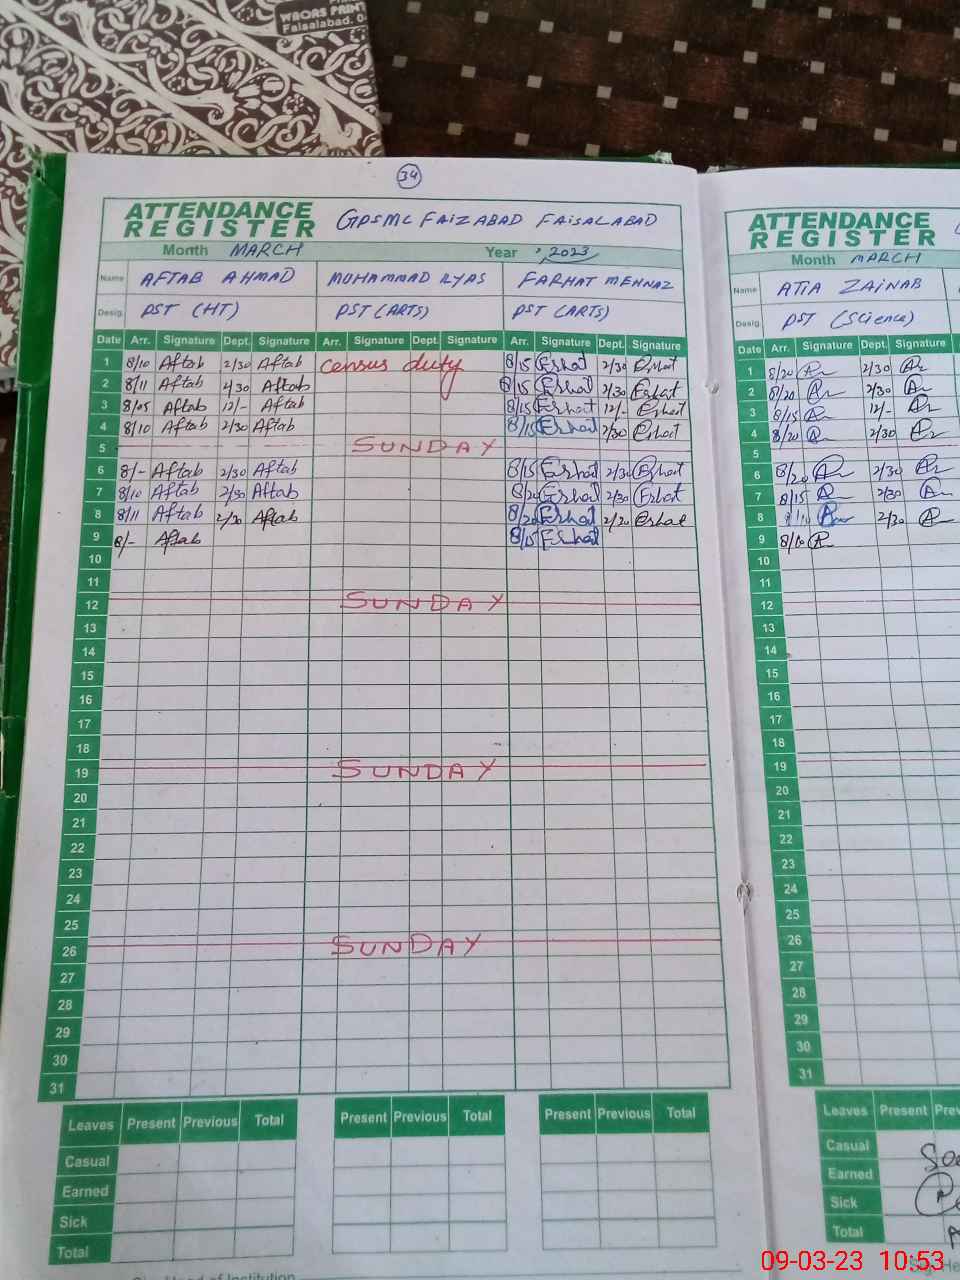 WAQAS PRIN
Faisalabad. 0
34
ATTENDANCE REGISTER GPSMC FAIZABAD FAISALABAD
Month MARCH Year 2023
Name AFTAB AHMAD MUHAMMAD ILYAS FARHAT MEHNAZ
Desig. PST (HT) PST (ARTS) PST (ARTS)
Date Arr. Signature Dept. Signature Arr. Signature Dept. Signature Arr. Signature Dept. Signature
1 8/10 Aftab 2/30 Aftab census duty 8/15 Erhat 2/30 Erhat
2 8/11 Aftab 2/30 Aftab 8/15 Erhat 2/30 Erhat
3 8/05 Aftab 12/- Aftab 8/15 Erhat 12/- Erhat
4 8/10 Aftab 2/30 Aftab 8/15 Erhat 2/30 Erhat
5 SUNDAY
6 8/- Aftab 2/30 Aftab 8/15 Erhat 2/30 Erhat
7 8/10 Aftab 2/30 Aftab 8/20 Erhat 2/30 Erhat
8 8/11 Aftab 2/30 Aftab 8/20 Erhat 2/20 Erhat
9 8/- Aftab 8/15 Erhat
10
11
12 SUNDAY
13
14
15
16
17
18
19 SUNDAY
20
21
22
23
24
25
26 SUNDAY
27
28
29
30
31
Leaves Present Previous Total Present Previous Total Present Previous Total
Casual
Earned
Sick
Total
ATTENDANCE REGISTER
Month MARCH
Name ATIA ZAINAB
Desig. PST (Science)
Date Arr. Signature Dept. Signature
1 8/20 2/30
2 8/20 2/30
3 8/15 12/-
4 8/20 2/30
5
6 8/20 2/30
7 8/15 2/30
8 2/30
9 8/10
10
11
12
13
14
15
16
17
18
19
20
21
22
23
24
25
26
27
28
29
30
31
Leaves Present Pre
Casual
Earned
Sick
Total
09-03-23 10:53